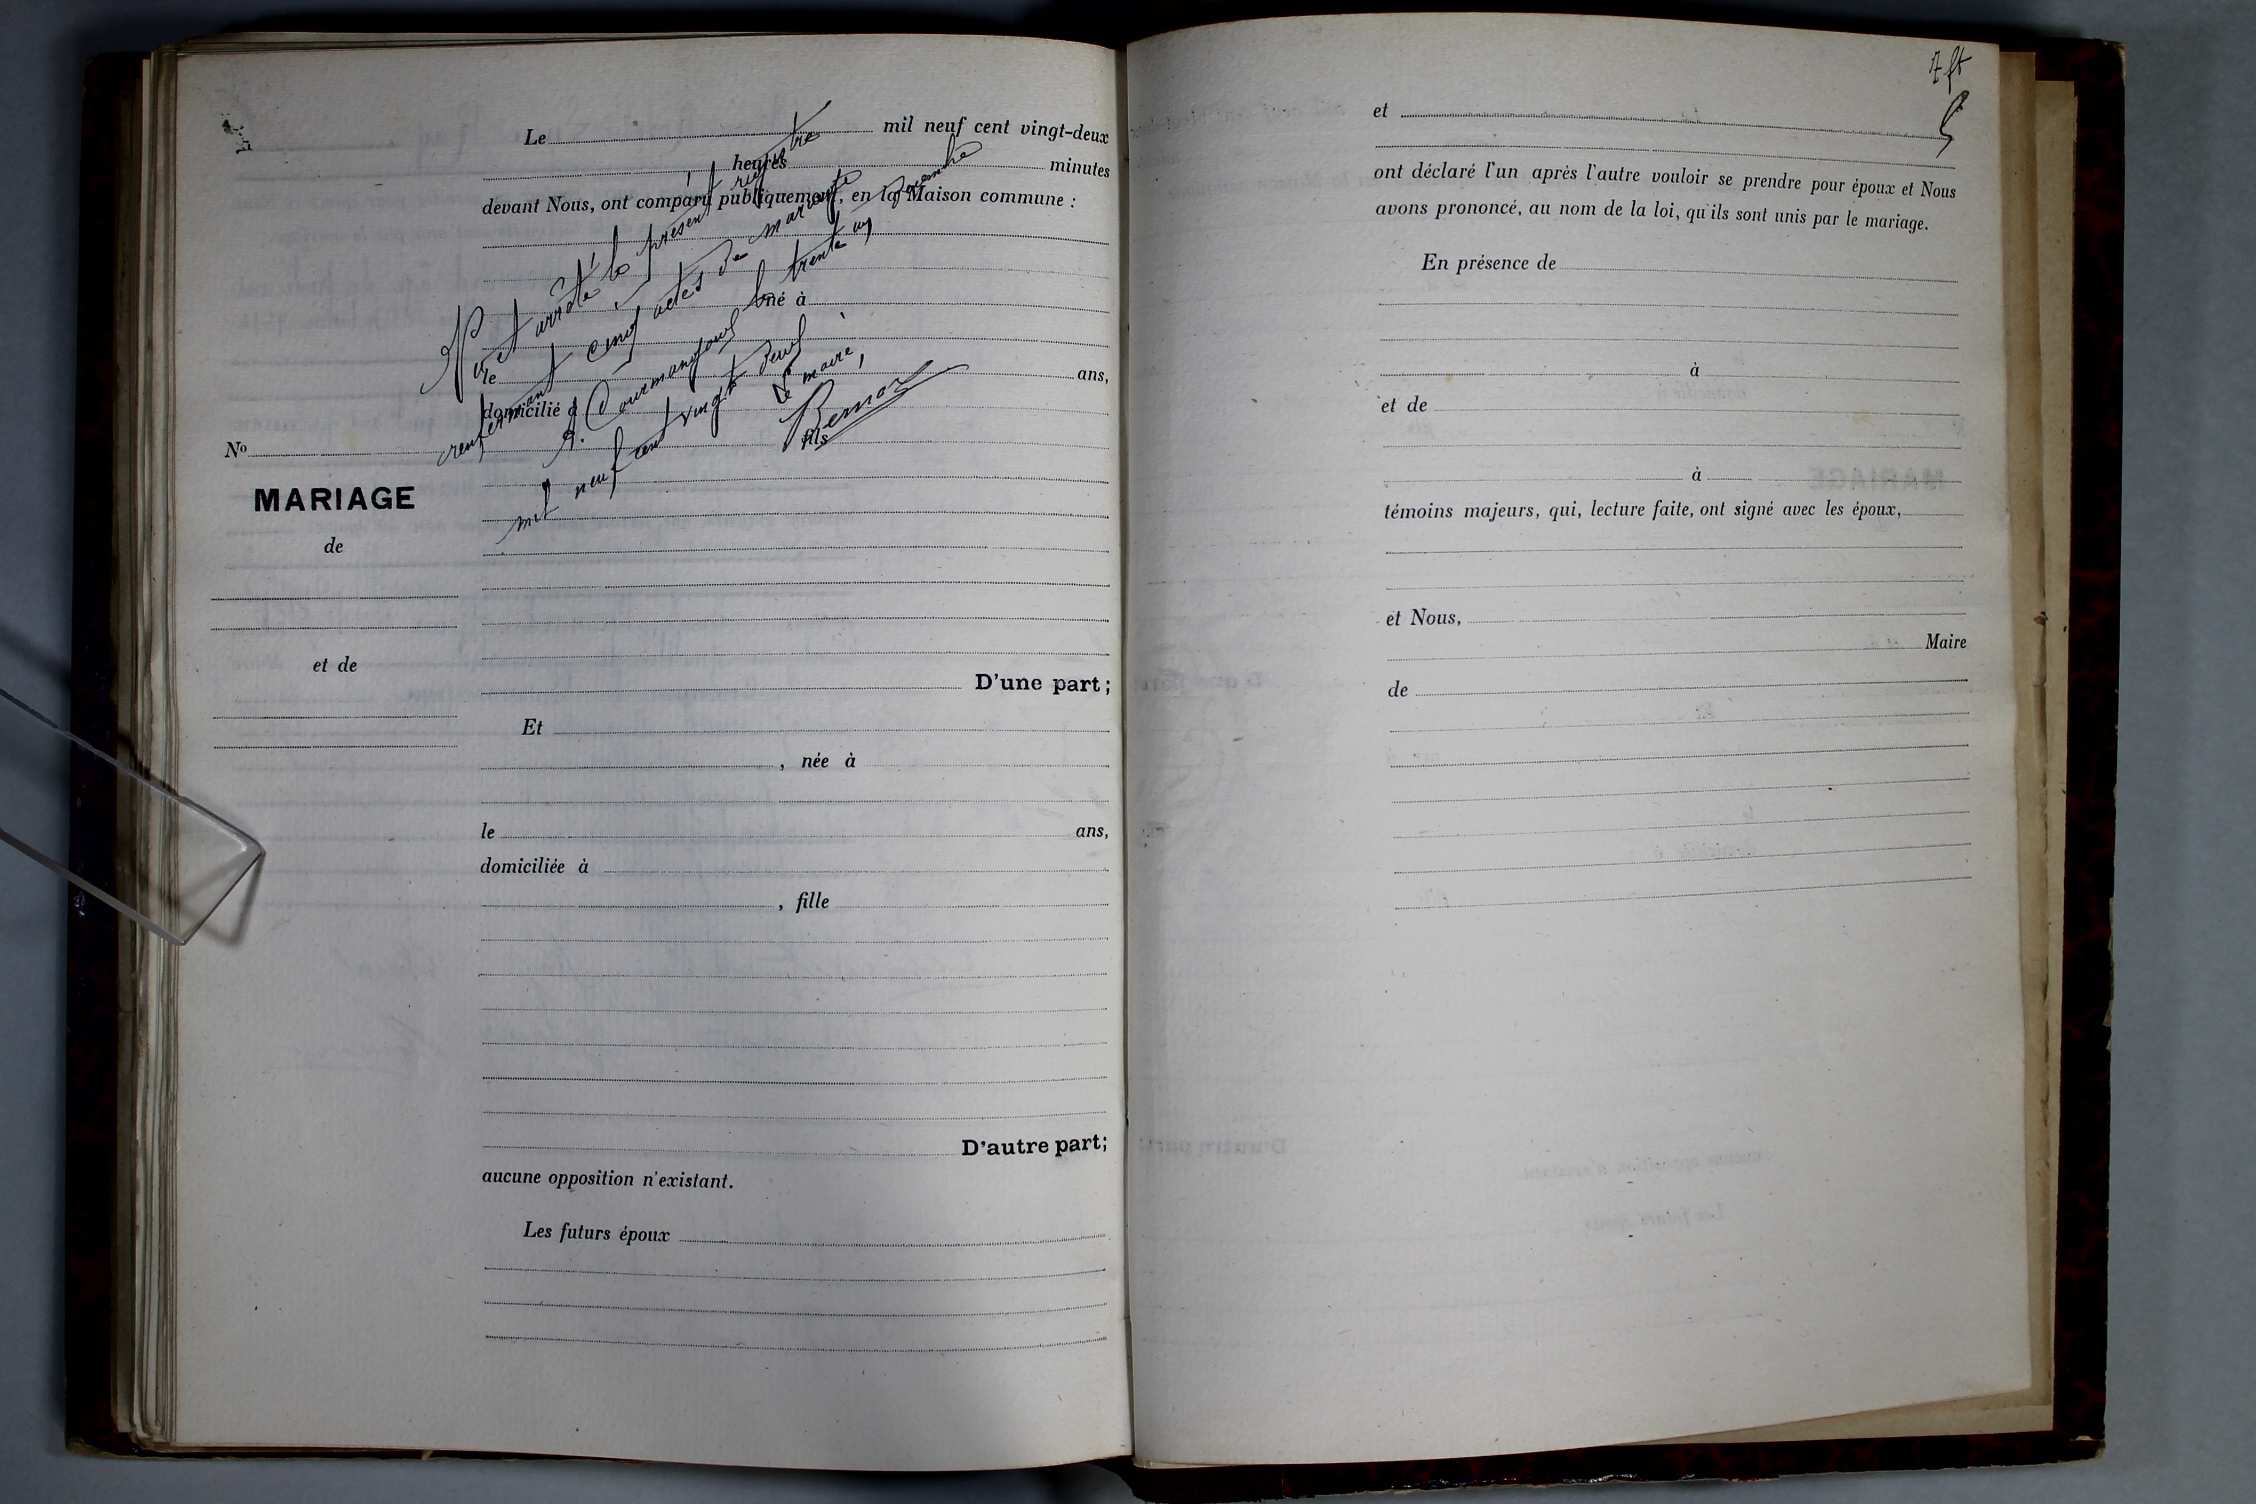 Le mil neuf cent vingt-deux
heures minutes
devant Nous, ont comparu publiquement, en la Maison commune :
né à
le ans,
domicilié à
fils
Vu et arrêté le présent registre
renfermant cinq actes de mariage
A Courmangoux le trente un Décembre
mil neuf cent vingt deux
Le maire,
Bernoz
No
MARIAGE
de
et de
D'une part;
Et
, née à
le ans,
domiciliée à
, fille
D'autre part;
aucune opposition n'existant.
Les futurs époux
7 ft
et
ont déclaré l'un après l'autre vouloir se prendre pour époux et Nous
avons prononcé, au nom de la loi, qu'ils sont unis par le mariage.
En présence de
à
et de
à
témoins majeurs, qui, lecture faite, ont signé avec les époux,
et Nous,
Maire
de